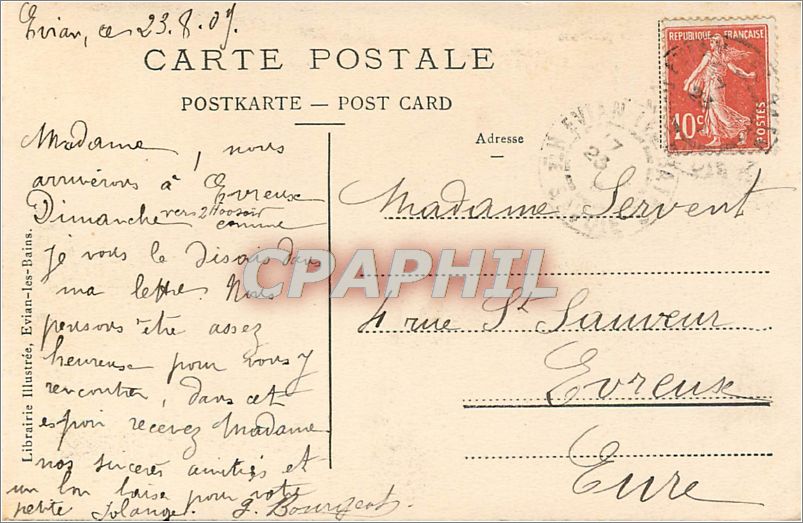 Evian, ce 23.8.07.
CARTE POSTALE
POSTKARTE — POST CARD
REPUBLIQUE FRANÇAISE
10c
POSTES
EVIAN
Adresse
Madame, nous
arriverons à Evreux
Dimanche vers 2H00 soir comme
je vous le disais dans
ma lettre. Nous
pensons être assez
heureuse pour vous y
rencontrer, dans cet
espoir recevez Madame
nos sincères amitiés et
un bon baiser pour votre
petite Solange. J. Bourgeot
Madame Servent
4 rue St Sauveur
Evreux
Eure
Librairie Illustrée, Evian-les-Bains.
CPAPHIL